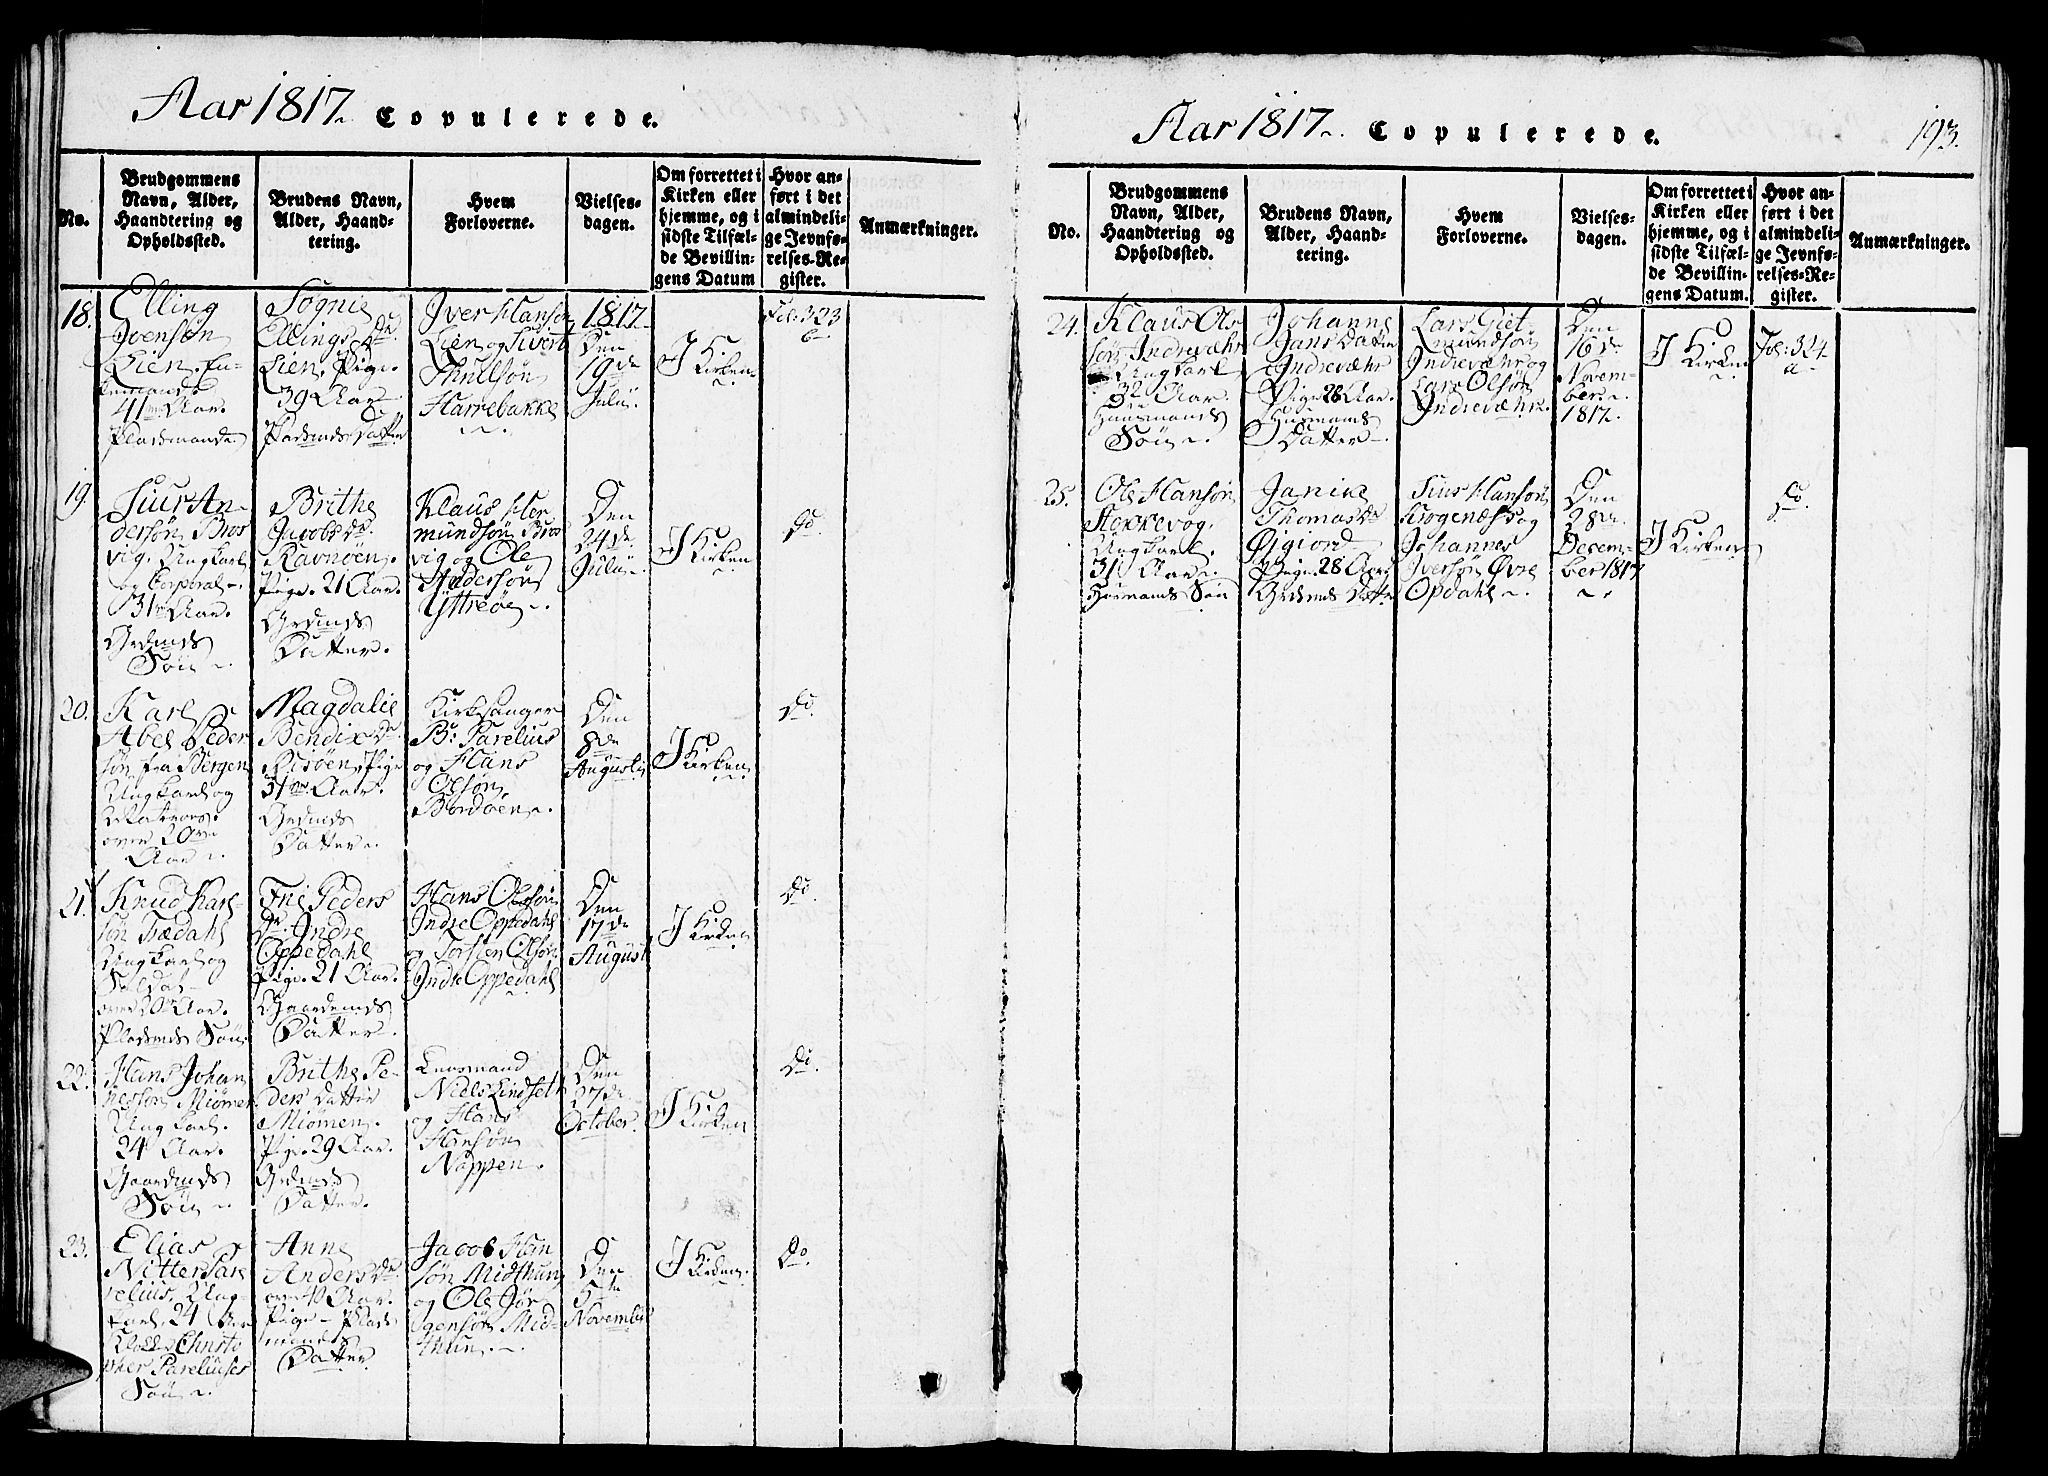 Aar 1817. Copulerede.
No.
Brudgommens
Navn, Alder,
Haandtering og
Opholdssted.
Brudens Navn,
Alder, Haand-
tering.
Hvem
Forloverne.
Vielses-
dagen.
Om forrettet i
Kirken eller
hjemme, og i
sidste Tilfæl-
de Bevillin-
gens Datum
Hvor an-
ført i det
almindeli-
ge Jevnfø-
relses-Re-
gister.
Anmærkninger.
18.
Elling
Lien
41 Aar.
Pladsmand
Søgnie
Ellings Dr.
Lien. Pige.
39 Aar
Pladsmds Datter
Iver Hansøn
Lien og Sivert
Harrebakke
1817.
Den
19de
Julii.
I Kirken
Fol: 323
b.
19.
Siur An-
dersøn Bros
vig. Ungkarl
og Corporal.
31 Aar.
Grdmds
Søn.
Brithe
Jacobs Dr.
Ravnøen.
Pige. 21 Aar.
Grdmds
Datter.
Klaus Her
mundsøn Bros
vig og Ole
Andersøn
Yttreøe.
Den
24de
Julii.
I Kirken
Do.
20.
Karl
Abel Peder
søn fra Bergen
Ungkarl og
over 20
Aar.
Magdalie
Bendix Dr.
Risøen, Pige
31 Aar.
Grdmds
Datter.
Kirksanger
B: Parelius
og Hans
Olsøn
Bordøen.
Den
8de
Augusti
I Kirken
Do.
21.
Knud Karl-
søn Trædahl
Ungkarl og
Soldat
over 30 Aar.
Pladsmds Søn.
Peders
Dr. Indre
Oppedahl
Pige. 21 Aar.
Gaardmds
Datter.
Hans Olssøn
Indre Oppedahl
og Torsten Olsøn
Indre Oppedahl
Den
17de
August
I Kirken
Do.
22.
Hans Johan
nessøn Miømen
Ungkarl.
24 Aar.
Gaardmds
Søn.
Brithe Pe-
ders Datter
Miømen.
Pige. 29 Aar.
Grdmds
Datter.
Lensmand
Niels Lindseth
og Hans
Hansøn
Nøppen.
Den
27de
October.
I Kirken
Do.
23.
Elias
Nitter Pare
relius. Ung-
karl. 24 Aar
Klokker Christo
pher Pareliuses
Søn.
Anne
Anders Dr.
over 40 Aar.
Pige. Plads
mands
Datter
Jacob Han
søn Midthun
og Ole Jør
gensøn Mid-
thun.
Den
5te
November
I Kirken.
Do.
Aar 1817. Copulerede.
193.
No.
Brudgommens
Navn, Alder,
Haandtering og
Opholdssted.
Brudens Navn,
Alder, Haand-
tering.
Hvem
Forloverne.
Vielses-
dagen.
Om forrettet i
Kirken eller
hjemme, og i
sidste Tilfæl-
de Bevillin-
gens Datum.
Hvor an-
ført i det
almindeli-
ge Jevnfø-
relses-Re-
gister.
Anmærkninger.
24.
Klaus Ols
søn Indrevæhr
Ungkarl
32 Aar.
Huusmands
Søn.
Johanne
Jans Datter
Indrevæhr
Pige 28 Aar.
Husmands
Datter.
Lars Giet-
mundsøn
Indrevæhr og
Lars Olsøn
Indrevæhr.
Den
16de
Novem-
ber.
1817.
I Kirken
Fol: 324
a.
25.
Ole Hansøn
Stokkevog.
Ungkarl.
31 Aar.
Huusmands Søn
Janike
Thomas Dr
Øigiord
Pige. 28 Aar
Grdmds Datter
Siur Hansøn
Krogenæs og
Johannes
Iversøn Øvre
Opdahl.
Den
28de
Decem-
ber 1817
I Kirken
Do